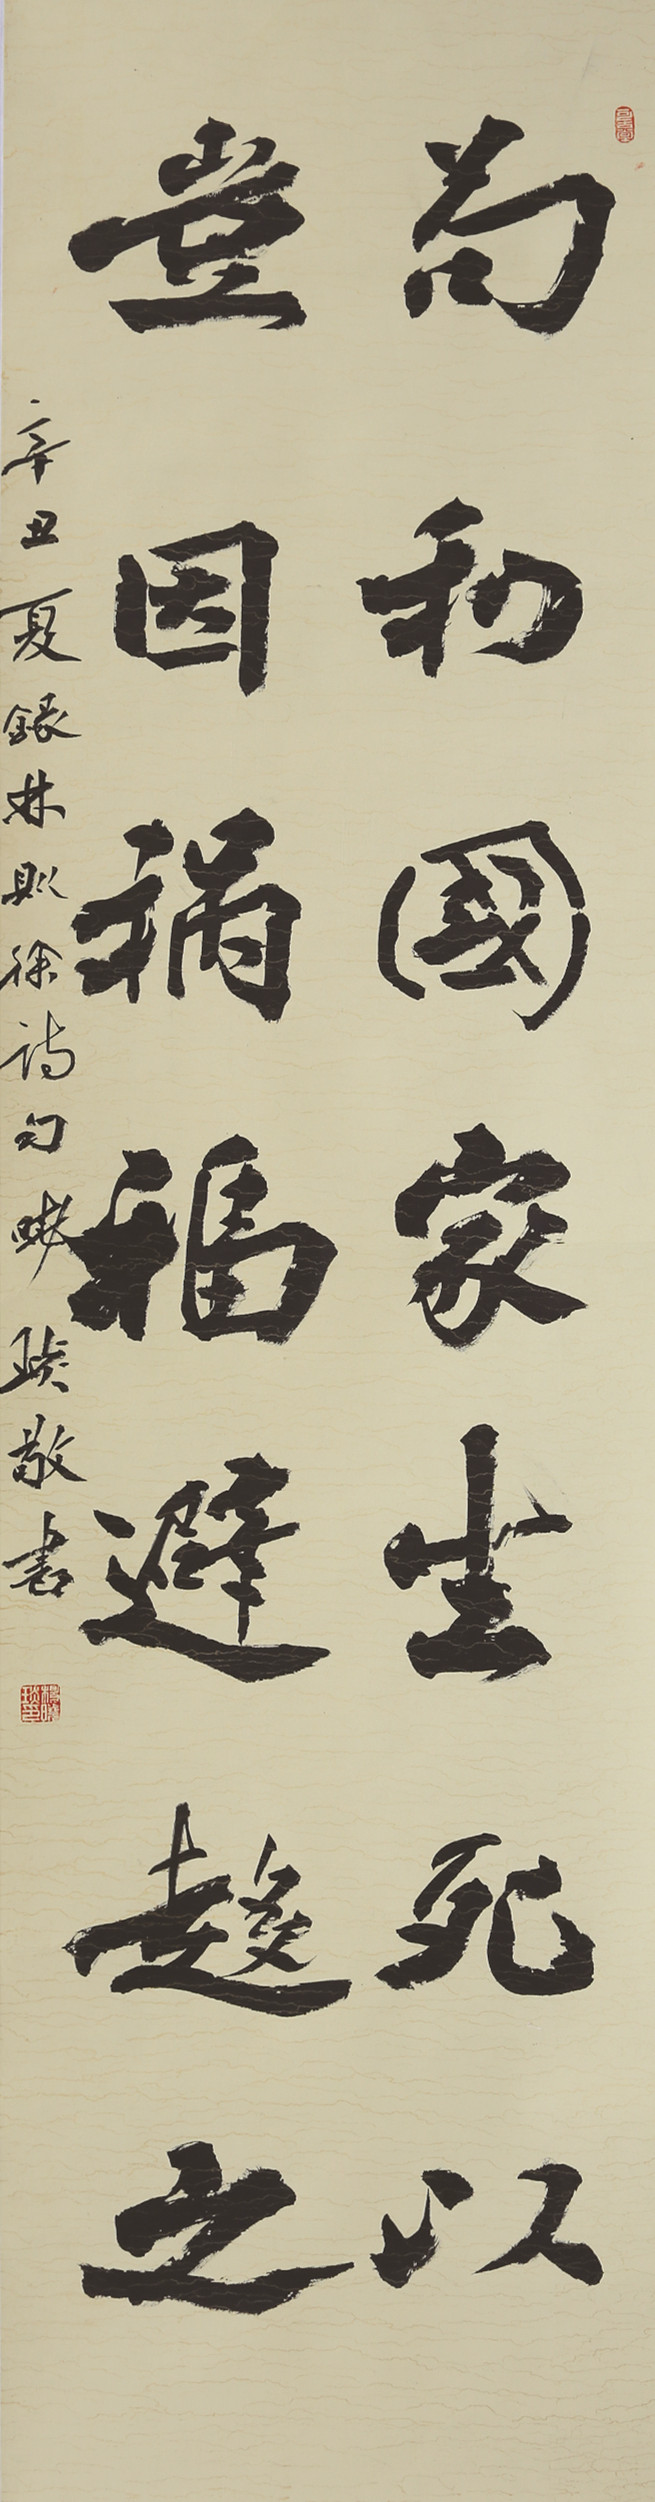 苟利國家生死以
豈因禍福避趍之
辛丑夏錄林則徐詩句曉琰敬書
楊曉琰印